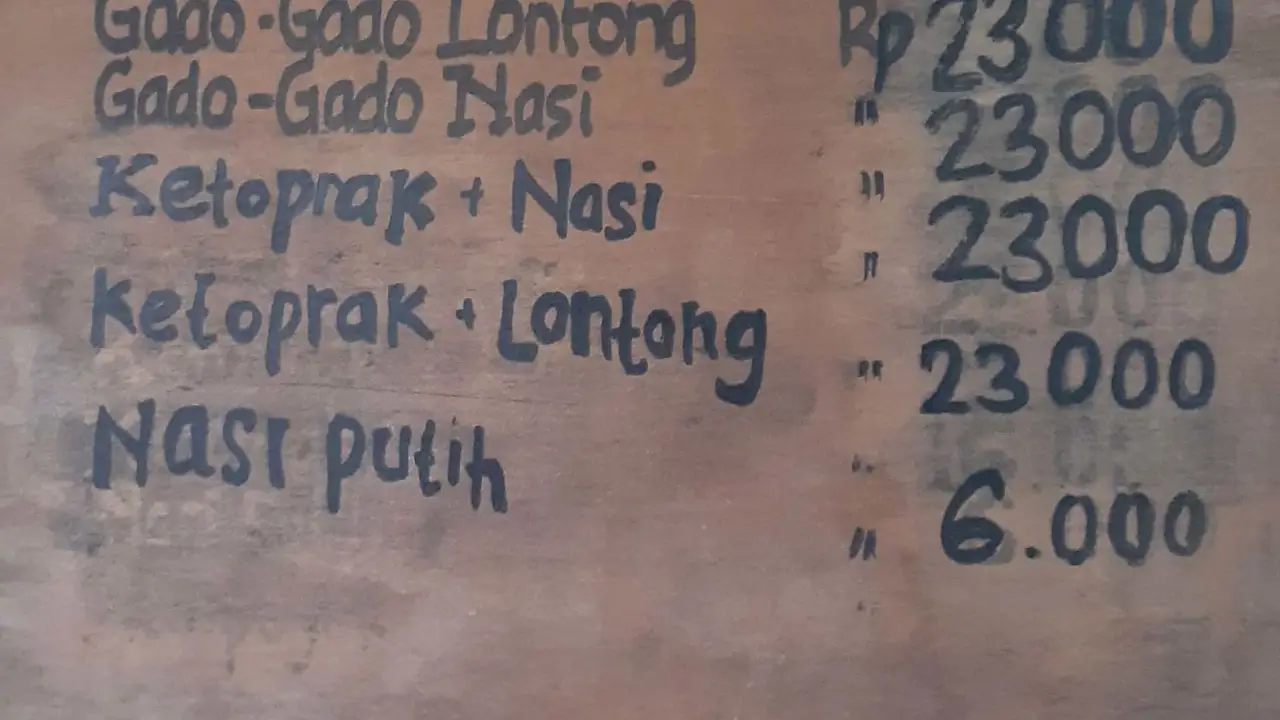 Gado-Gado Lontong Rp 23000
Gado-Gado Nasi " 23000
Ketoprak + Nasi " 23000
Ketoprak + Lontong " 23000
Nasi putih " 6.000